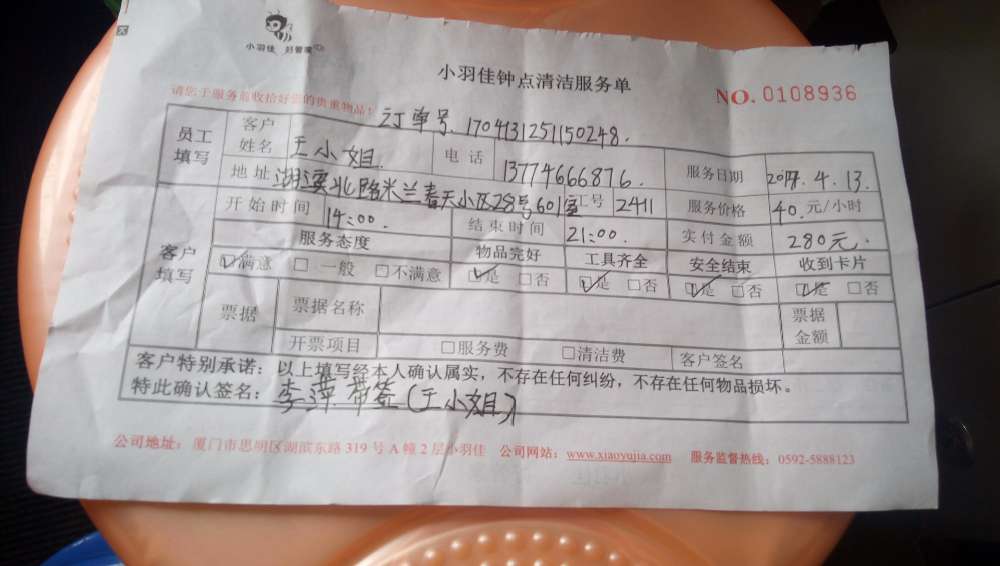 小羽佳 好管家
小羽佳钟点清洁服务单
NO. 0108936
请您于服务前收拾好您的贵重物品！
订单号.1704131251150248.
员工填写 客户姓名 王小姐 电话 13774666876. 服务日期 2017.4.13.
地址 湖滨北路米兰春天小区28号601室 工号 2411 服务价格 40.元/小时
客户填写 开始时间 14:00 结束时间 21:00. 实付金额 280元.
服务态度 物品完好 工具齐全 安全结束 收到卡片
☑满意 □一般 □不满意 ☑是 □否 ☑是 □否 ☑是 □否 ☑是 □否
票据 票据名称 票据金额
开票项目 □服务费 □清洁费 客户签名
客户特别承诺：以上填写经本人确认属实，不存在任何纠纷，不存在任何物品损坏。
特此确认签名：李萍带签(王小姐)
公司地址：厦门市思明区湖滨东路319号A幢2层小羽佳 公司网站：www.xiaoyujia.com 服务监督热线：0592-5888123